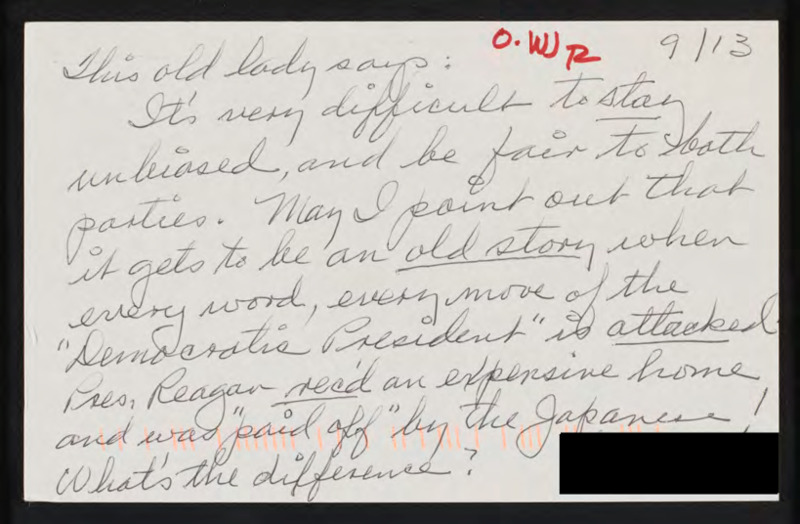 O.W R 9/13
This old lady says:
It's very difficult to stay
unbiased, and be fair to both
parties. May I point out that
it gets to be an old story when
every word, every move of the
"Democratic President" is attacked
Pres. Reagan rec'd an expensive home
and was "paid off" by the Japanese!
What's the difference?